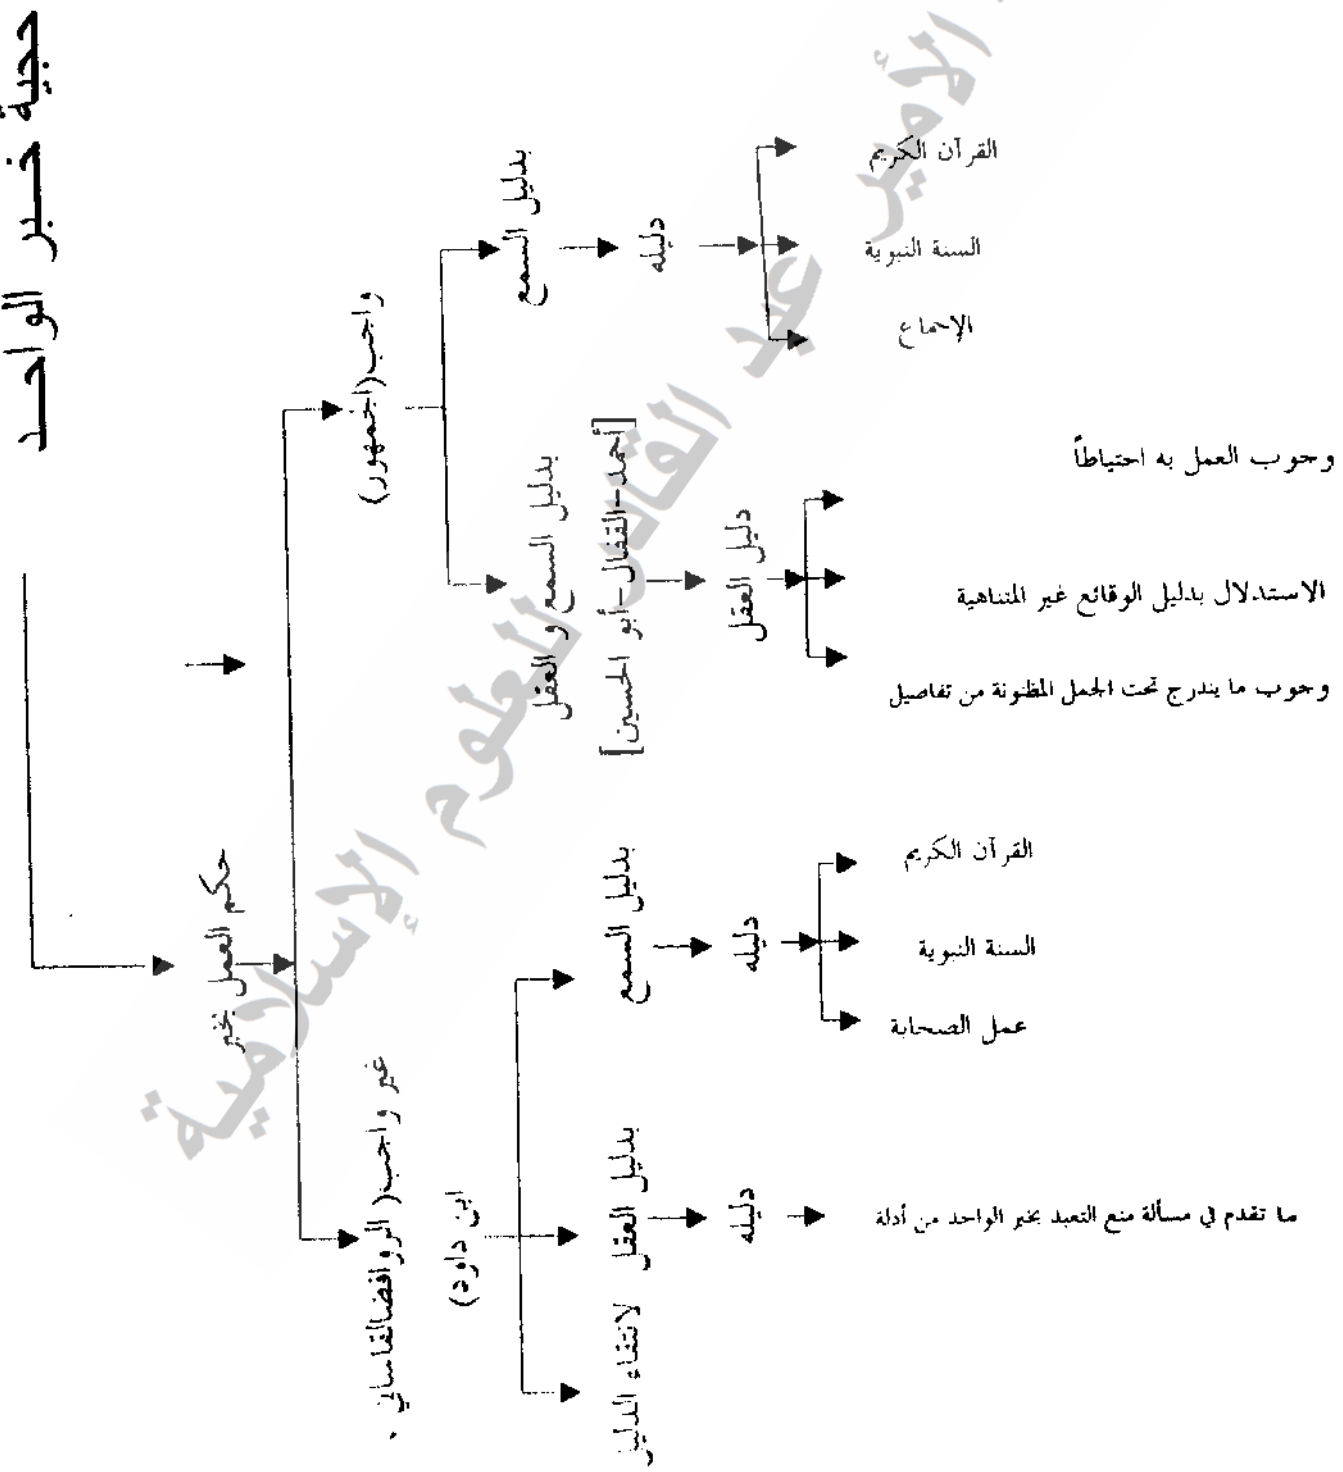 حجية خبر الواحد
حكم العمل بخبر
واجب(الجمهور)
بدليل السمع
دليله
القرآن الكريم
السنة النبوية
الإجماع
بدليل السمع و العقل
[أحمد-القفال-أبو الحسين]
دليل العقل
وجوب العمل به احتياطاً
الاستدلال بدليل الوقائع غير المتناهية
وجوب ما يندرج تحت الجمل المظنونة من تفاصيل
غير واجب( الروافضالقاساني ،
ابن داود)
بدليل السمع
دليله
القرآن الكريم
السنة النبوية
عمل الصحابة
بدليل العقل
دليله
ما تقدم في مسألة منع التعبد بخبر الواحد من أدلة
لانتفاء الدليل
الأمير عبد القادر للعلوم الإسلامية